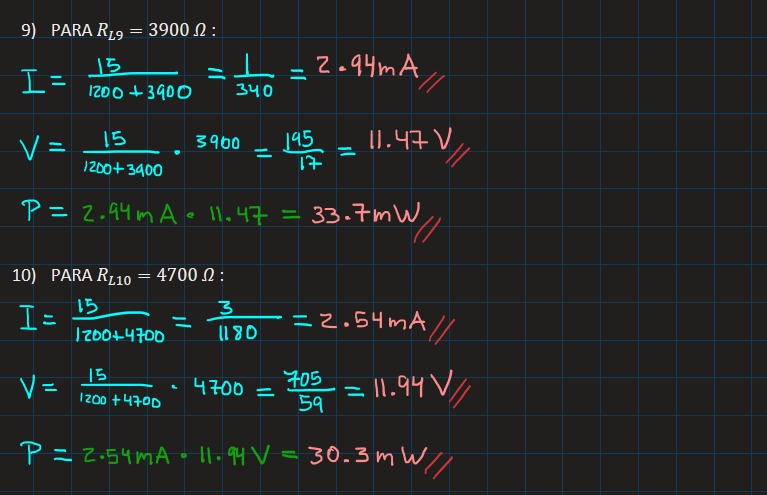 9) PARA R_L9 = 3900 Ω :
I = 15 / (1200 + 3900) = 1 / 340 = 2.94mA //
V = 15 / (1200 + 3900) · 3900 = 195 / 17 = 11.47 V //
P = 2.94mA · 11.47 = 33.7mW //
10) PARA R_L10 = 4700 Ω :
I = 15 / (1200 + 4700) = 3 / 1180 = 2.54mA //
V = 15 / (1200 + 4700) · 4700 = 705 / 59 = 11.94 V //
P = 2.54mA · 11.94 V = 30.3mW //